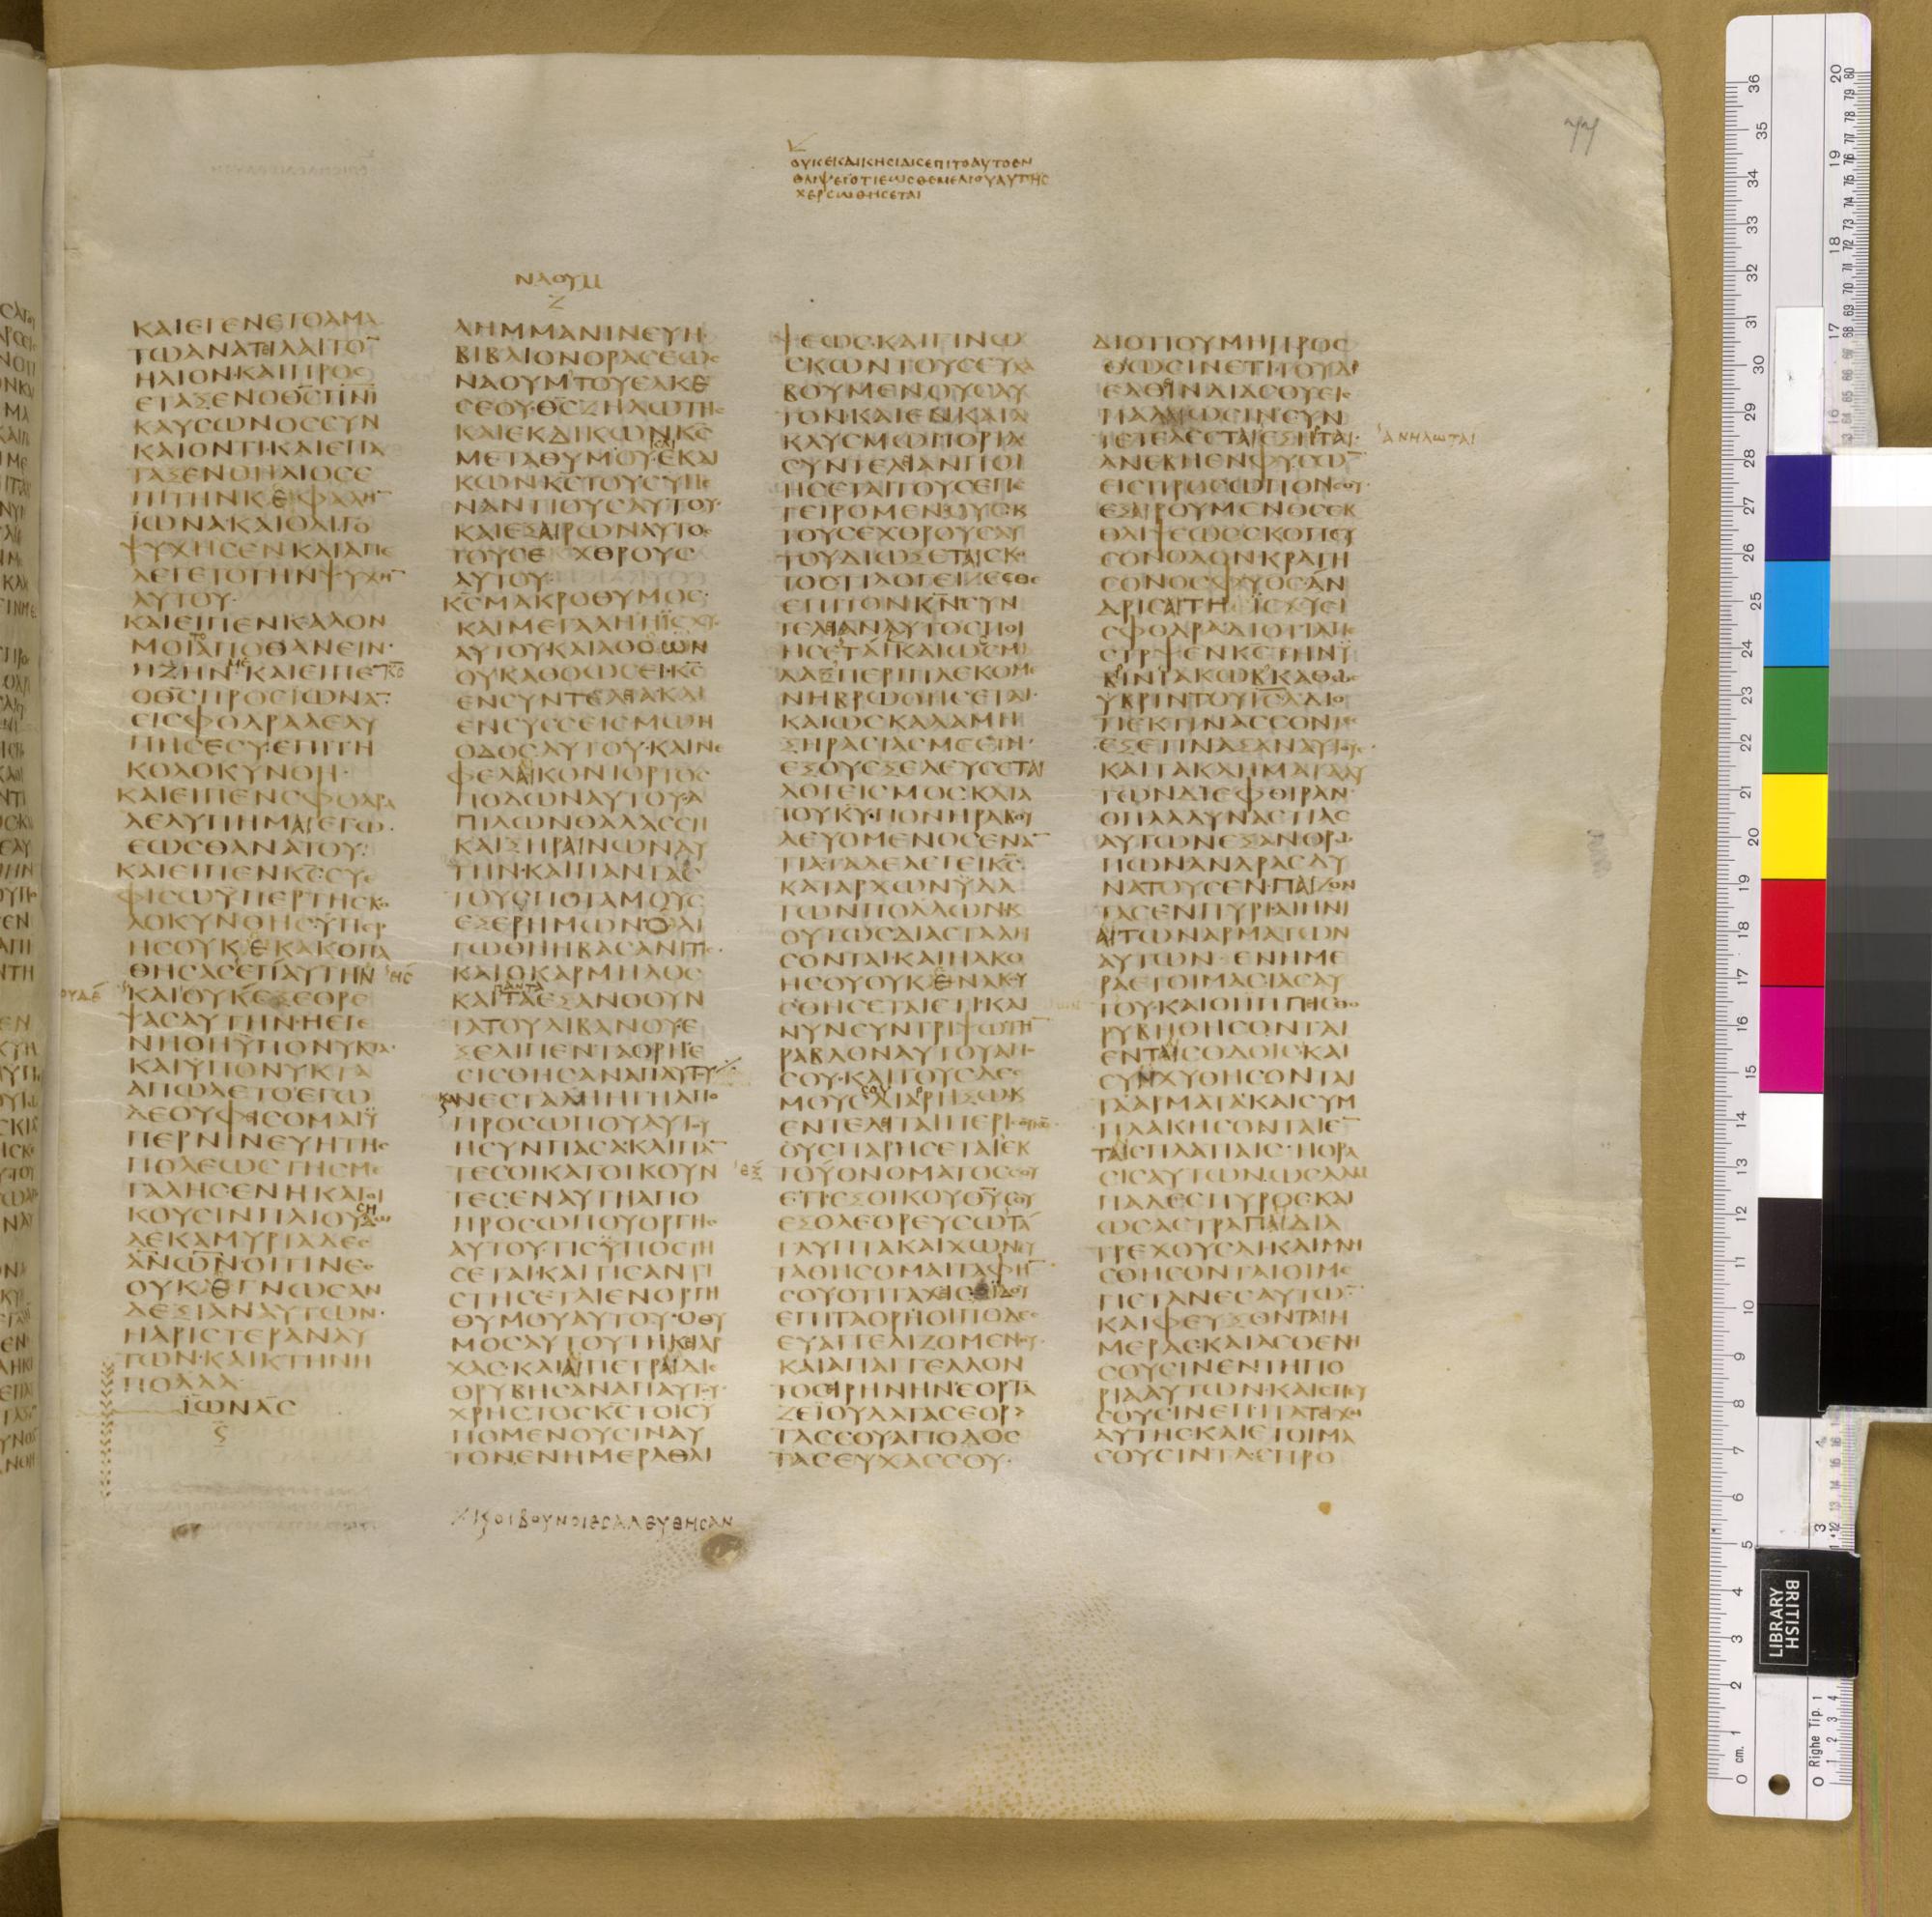 ΟΥΚΕΚΔΙΚΗCΙΔΙCΕΠΙΤΟΑΥΤΟΕΝ
ΘΛΙΨΕΙΟΤΙΕΩCΘΕΜΕΛΙΟΥΑΥΤΗC
ΧΕΡCΩΘΗCΕΤΑΙ
ΝΑΟΥΜ
Ζ
ΚΑΙΕΓΕΝΕΤΟΑΜΑ
ΤΩΑΝΑΤΙΛΑΙΤΟ̅
ΗΛΙΟΝ·ΚΑΙΠΡΟC
ΕΤΑΞΕΝΟΘ̅C̅ΠΝΙ
ΚΑΥCΩΝΟCCΥΝ
ΚΑΙΟΝΤΙ·ΚΑΙΕΠΑ
ΤΑΞΕΝΟΗΛΙΟCΕ
ΠΙΤΗΝΚΕΦΑΛΗ̅
ΪΩΝΑΚΑΙΟΛΙΓΟ
ΨΥΧΗCΕΝΚΑΙΑΠΕ
ΛΕΓΕΤΟΤΗΝΨΥΧΗ̅
ΑΥΤΟΥ·
ΚΑΙΕΙΠΕΝΚΑΛΟΝ
ΜΟΙΑΠΟΘΑΝΕΙΝ·
ΗΖΗΝ·ΚΑΙΕΙΠΕ̅ Κ̅C̅
ΟΘ̅C̅ΠΡΟCΪΩΝΑ̅·
ΕΙCΦΟΔΡΑΛΕΛΥ
ΠΗCΕCΥ·ΕΠΙΤΗ
ΚΟΛΟΚΥΝΘΗ·
ΚΑΙΕΙΠΕΝCΦΟΔΡΑ
ΛΕΛΥΠΗΜΑΙΕΓΩ·
ΕΩCΘΑΝΑΤΟΥ:
ΚΑΙΕΙΠΕΝΚ̅C̅CΥΕ
ΦΙCΩΫΠΕΡΤΗCΚΟ
ΛΟΚΥΝΘΗCΫΠΕΡ
ΗCΟΥΚΕΚΑΚΟΠΑ
ΘΗCΑCΕΠΑΥΤΗΝ
ΚΑΙΟΥΚΕΞΕΘΡΕ
ΨΑCΑΥΤΗΝ·ΗΕΓΕ
ΝΗΘΗΫΠΟΝΥΚΤΑ·
ΚΑΙΫΠΟΝΥΚΤΑ
ΑΠΩΛΕΤΟΕΓΩ
ΔΕΟΥΦΙCΟΜΑΙΫ
ΠΕΡΝΙΝΕΥΗΤΗC
ΠΟΛΕΩCΤΗCΜΕ
ΓΑΛΗCΕΝΗΚΑΤΟΙ
ΚΟΥCΙΝΠΛΙΟΥC
ΔΕΚΑΜΥΡΙΑΔΕC
ΑΝ̅Ω̅Ν̅ΟΙΤΙΝΕC
ΟΥΚΕΓΝΩCΑΝ
ΔΕΞΙΑΝΑΥΤΩΝ·
ΗΑΡΙCΤΕΡΑΝΑΥ
ΤΩΝ·ΚΑΙΚΤΗΝΗ
ΠΟΛΛΑ
ΪΩΝΑC
ϛ
ΛΗΜΜΑΝΙΝΕΥΗ·
ΒΙΒΛΙΟΝΟΡΑCΕΩC
ΝΑΟΥΜΤΟΥΕΛΚΕ
CΕΟΥ·Θ̅C̅ΖΗΛΩΤΗC
ΚΑΙΕΚΔΙΚΩΝΚ̅C̅
ΜΕΤΑΘΥΜΟΥ·ΕΚΔΙ
ΚΩΝΚ̅C̅ΤΟΥCΥΠΕ
ΝΑΝΤΙΟΥCΑΥΤΟΥ·
ΚΑΙΕΞΑΙΡΩΝΑΥΤΟC
ΤΟΥCΕΧΘΡΟΥC
ΑΥΤΟΥ·
Κ̅C̅ΜΑΚΡΟΘΥΜΟC·
ΚΑΙΜΕΓΑΛΗΗΪCΧΥC
ΑΥΤΟΥΚΑΙΑΘΟΩΝ
ΟΥΚΑΘΟΩCΕΙ·Κ̅C̅
ΕΝCΥΝΤΕΛΙΑΚΑΙ
ΕΝCΥCCΕΙCΜΩΗ
ΟΔΟCΑΥΤΟΥ·ΚΑΙΝΕ
ΦΕΛΑΙΚΟΝΙΟΡΤΟC
ΠΟΔΩΝΑΥΤΟΥ·Α
ΠΙΛΩΝΘΑΛΑCCΗ
ΚΑΙΞΗΡΑΙΝΩΝΑΥ
ΤΗΝ·ΚΑΙΠΑΝΤΑC
ΤΟΥCΠΟΤΑΜΟΥC
ΕΞΕΡΗΜΩΝΟΛΙ
ΓΩΘΗΗΒΑCΑΝΙΤΙC
ΚΑΙΟΚΑΡΜΗΛΟC
ΚΑΙΤΑΕΞΑΝΘΟΥΝ
ΤΑΤΟΥΛΙΒΑΝΟΥΕ
ΞΕΛΙΠΕΝ·ΤΑΟΡΗΕ
CΙCΘΗCΑΝΑΠΑΥΤΟΥ
ΚΑΙΑΝΕCΤΑΛΗΗΓΗΑΠΟ
ΠΡΟCΩΠΟΥΑΥΤΟΥ
ΗCΥΝΠΑCΑ·ΚΑΙΠΑ̅
ΤΕCΟΙΚΑΤΟΙΚΟΥΝ
ΤΕCΕΝΑΥΤΗΑΠΟ
ΠΡΟCΩΠΟΥΟΡΓΗC
ΑΥΤΟΥ·ΤΙCΫΠΟCΤΗ
CΕΤΑΙ·ΚΑΙΤΙCΑΝΤΙ
CΤΗCΕΤΑΙΕΝΟΡΓΗ
ΘΥΜΟΥΑΥΤΟΥ·ΟΘΥ
ΜΟCΑΥΤΟΥΤΗΚΕΙΑΡ
ΧΑC·ΚΑΙΑΙΠΕΤΡΑΙΔΙΕ
ΘΡΥΒΗCΑΝΑΠΑΥΤΟΥ·
ΧΡΗCΤΟCΚ̅C̅ΤΟΙCΫ
ΠΟΜΕΝΟΥCΙΝΑΥ
ΤΟΝ·ΕΝΗΜΕΡΑΘΛΙ
ΚΑΙΟΙΒΟΥΝΟΙΕCΑΛΕΥΘΗCΑΝ
ΨΕΩC·ΚΑΙΓΙΝΩ
CΚΩΝΤΟΥCΕΥΛΑ
ΒΟΥΜΕΝΟΥCΑΥ
ΤΟΝ·ΚΑΙΕΝΚΑΤΑ
ΚΛΥCΜΩΠΟΡΙΑC
CΥΝΤΕΛΙΑΝΠΟΙ
ΗCΕΤΑΙΤΟΥCΕΠΕ
ΓΕΙΡΟΜΕΝΟΥCΚ
ΤΟΥCΕΧΘΡΟΥCΑΥ
ΤΟΥΔΙΩΞΕΤΑΙCΚΟ
ΤΟCΤΙΛΟΓΕΙΖΕCΘΕ
ΕΠΙΤΟΝΚ̅Ν̅CΥΝ
ΤΕΛΙΑΝΑΥΤΟCΠΟΙ
ΗCΕΤΑΙ·ΚΑΙΩCCΜΙ
ΛΑΞΠΕΡΙΠΛΕΚΟΜΕ
ΝΗΒΡΩΘΗCΕΤΑΙ·
ΚΑΙΩCΚΑΛΑΜΗ
ΞΗΡΑCΙΑCΜΕCΤΗ·
ΕΞΟΥCΞΕΛΕΥCΕΤΑΙ
ΛΟΓΕΙCΜΟCΚΑΤΑ
ΤΟΥΚ̅Υ̅·ΠΟΝΗΡΑΒΟΥ
ΛΕΥΟΜΕΝΟCΕΝΑ̅
ΤΙΑ·ΤΑΔΕΛΕΓΕΙΚ̅C̅·
ΚΑΤΑΡΧΩΝΫΔΑ
ΤΩΝΠΟΛΛΩΝΚ
ΟΥΤΩCΔΙΑCΤΑΛΗ
CΟΝΤΑΙ·ΚΑΙΗΑΚΟ
ΗCΟΥΟΥΚΕΝΑΚΟΥ
CΘΗCΕΤΑΙΕΤΙ·ΚΑΙ
ΝΥΝCΥΝΤΡΙΨΩΤΗ̅
ΡΑΒΔΟΝΑΥΤΟΥΑΠΟ
CΟΥ·ΚΑΙΤΟΥCΔΕC
ΜΟΥCΔΙΑΡΗΞΩΚ
ΕΝΤΕΛΙΤΑΙΠΕΡΙ
ΟΥCΠΑΡΗCΕΤΑΙΕΚ
ΤΟΥΟΝΟΜΑΤΟCCΟΥ
ΕΤΙ·ΕΞΟΙΚΟΥΘ̅Υ̅CΟΥ
ΕΞΟΛΕΘΡΕΥCΩΤΑ
ΓΛΥΠΤΑΚΑΙΧΩΝΕΥ
ΤΑΘΗCΟΜΑΙΤΑΦΗ̅
CΟΥΟΤΙΤΑΧΙCΙΔΟΥ
ΕΠΙΤΑΟΡΗΟΙΠΟΔΕC
ΕΥΑΓΓΕΛΙΖΟΜΕΝΟΥ·
ΚΑΙΑΠΑΓΓΕΛΛΟΝ
ΤΟCΙΡΗΝΗΝ·ΕΟΡΤΑ
ΖΕΪΟΥΔΑΤΑCΕΟΡ
ΤΑCCΟΥΑΠΟΔΟC
ΤΑCΕΥΧΑCCΟΥ·
ΔΙΟΤΙΟΥΜΗΠΡΟC
ΘΩCΙΝΕΤΙΤΟΥΔΙ
ΕΛΘΙΝΔΙΑCΟΥΕΙC
ΠΑΛΑΙΩCΙΝCΥΝ
ΤΕΤΕΛΕCΤΑΙΕΞΗΡΤΑΙ· ΑΝΗΛΩΤΑΙ
ΑΝΕΒΗΕΝΦΥCΩ̅
ΕΙCΠΡΟCΩΠΟΝCΟΥ·
ΕΞΑΙΡΟΥΜΕΝΟCΕΚ
ΘΛΙΨΕΩCCΚΟΠΕΥ
CΟΝΟΔΟΝΚΡΑΤΗ
CΟΝΟCΦΥΟCΑΝ
ΔΡΙCΑΙΤΗΪCΧΥΕΙ
CΦΟΔΡΑΔΙΟΤΙΑΠΕ
CΤΡΨΕΝΚ̅C̅ΤΗΝΫ
ΒΡΙΝΪΑΚΩΒΚΑΘΩC
ΥΒΡΙΝΤΟΥΙ̅C̅Λ̅ΔΙΟ
ΤΙΕΚΤΙΝΑCCΟΝΤΕC
ΕΞΕΤΙΝΑΞΑΝΑΥΤΟΥC·
ΚΑΙΤΑΚΛΗΜΑΤΑΑΥ
ΤΩΝΔΙΕΦΘΙΡΑΝ·
ΟΠΛΑΔΥΝΑCΤΙΑC
ΑΥΤΩΝΕΞΑΝΘΡΩ
ΠΩΝΑΝΔΡΑCΔΥ
ΝΑΤΟΥCΕΝΠΑΙΖΟΝ
ΤΑCΕΝΠΥΡΙ·ΑΙΗΝΙ
ΑΙΤΩΝΑΡΜΑΤΩΝ
ΑΥΤΩΝ·ΕΝΗΜΕ
ΡΑΕΤΟΙΜΑCΙΑCΑΥ
ΤΟΥ·ΚΑΙΟΙΠΠΙCΘΟ
ΡΥΒΗΘΗCΟΝΤΑΙ
ΕΝΤΑΙCΟΔΟΙC·ΚΑΙ
CΥΝΧΥΘΗCΟΝΤΑΙ
ΤΑΑΡΜΑΤΑ·ΚΑΙCΥΜ
ΠΛΑΚΗCΟΝΤΑΙΕ̅
ΤΑΙCΠΛΑΤΙΑΙC·ΗΟΡΑ
CΙCΑΥΤΩΝΩCΛΑΜ
ΠΑΔΕCΠΥΡΟCΚΑΙ
ΩCΑCΤΡΑΠΑΙΔΙΑ
ΤΡΕΧΟΥCΑΙ·ΚΑΙΜΝΗ
CΘΗCΟΝΤΑΙΟΙΜΕ
ΓΙCΤΑΝΕCΑΥΤΩ̅
ΚΑΙΦΕΥΞΟΝΤΑΙΗ
ΜΕΡΑC·ΚΑΙΑCΘΕΝΗ
CΟΥCΙΝΕΝΤΗΠΟ
ΡΙΑΑΥΤΩΝ·ΚΑΙCΠΕΥ
CΟΥCΙΝΕΠΙΤΑΤΕΙΧΗ
ΑΥΤΗCΚΑΙΕΤΟΙΜΑ
CΟΥCΙΝΤΑCΠΡΟ
BRITISH
LIBRARY